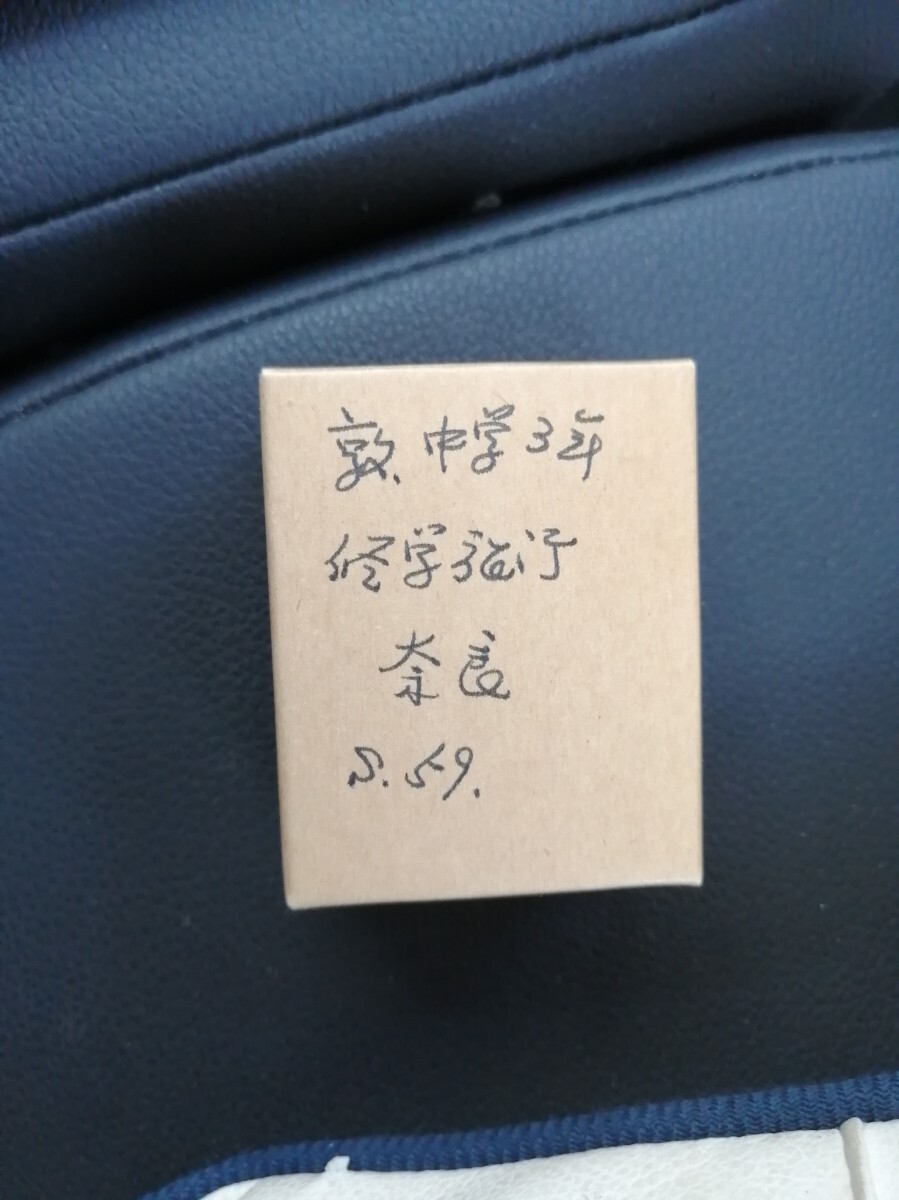 敦、中学3年
修学旅行
奈良
S.59.